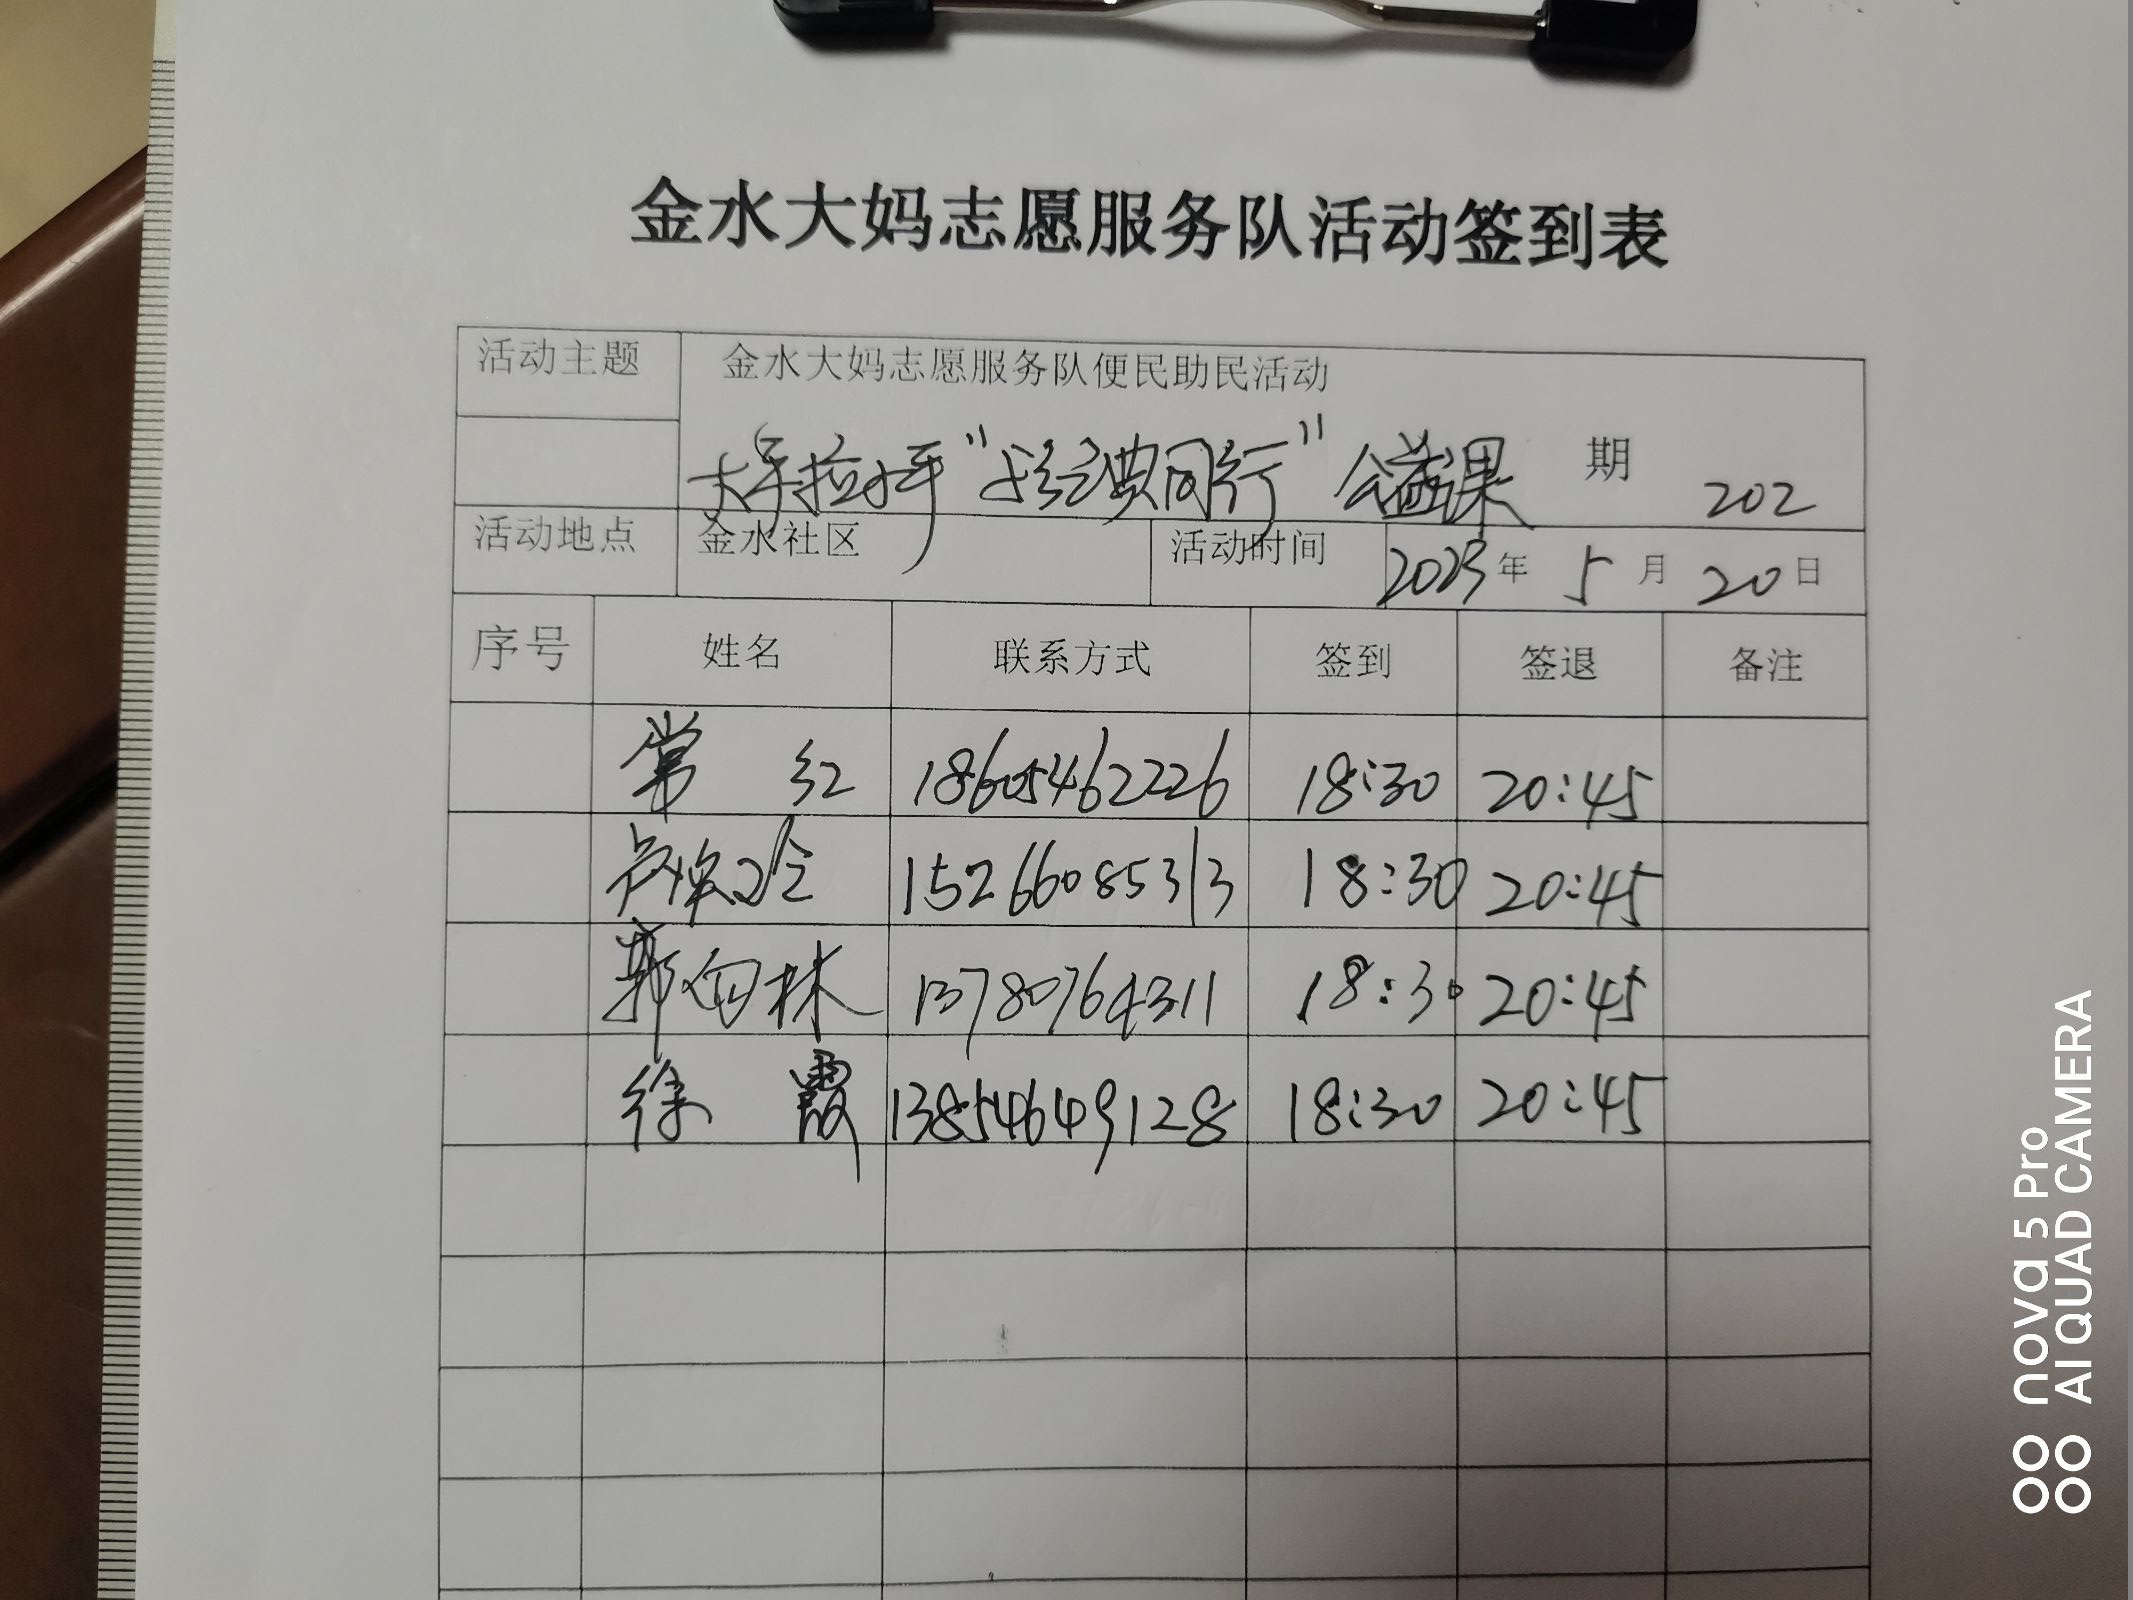 金水大妈志愿服务队活动签到表
活动主题 金水大妈志愿服务队便民助民活动
大手拉小手“ 同行”公益课 期 202
活动地点 金水社区 活动时间 2023年 5月 20日
序号 姓名 联系方式 签到 签退 备注
常 红 18605462226 18:30 20:45
卢焕玲 15266085313 18:30 20:45
郭向林 13780764311 18:30 20:45
徐 霞 13854649128 18:30 20:45
nova 5 Pro
AI QUAD CAMERA